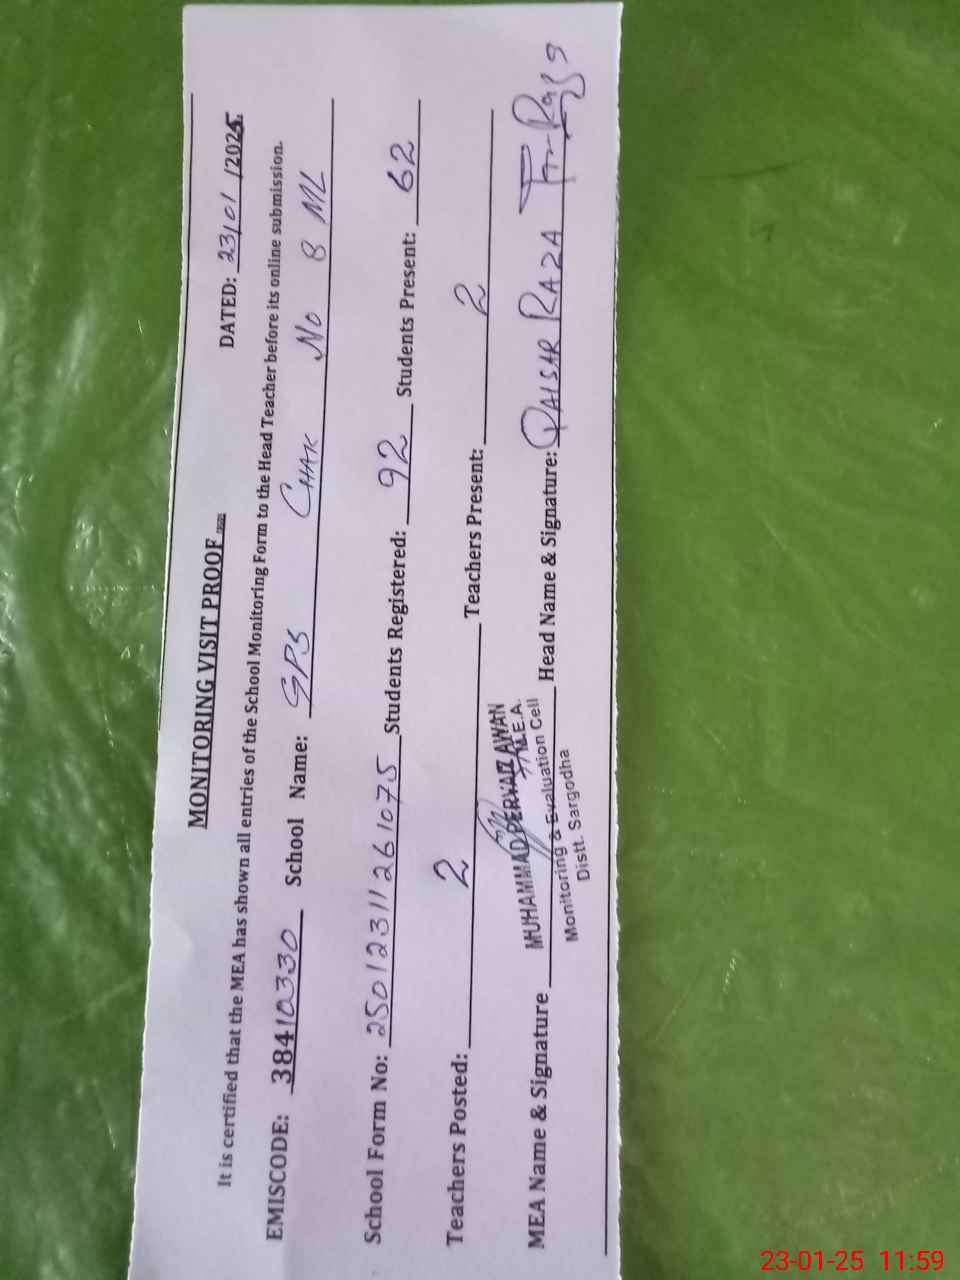 MONITORING VISIT PROOF
DATED: 23/01/2025
It is certified that the MEA has shown all entries of the School Monitoring Form to the Head Teacher before its online submission.
EMISCODE: 38410330 School Name: GPS CHAK No 8 ML
School Form No: 2501231126 1075 Students Registered: 92 Students Present: 62
Teachers Posted: 2 Teachers Present: 2
MEA Name & Signature MUHAMMAD PERVAIZ AWAN Head Name & Signature: QAISAR RAZA
M.E.A.
Monitoring & Evaluation Cell
Distt. Sargodha
23-01-25 11:59